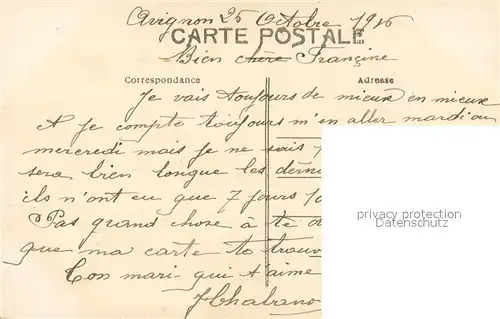 Avignon 26 Octobre 1916
CARTE POSTALE
Bien chère Françine
Correspondance
Adresse
Je vais toujours de mieux en mieux
A je compte toujours m'en aller mardi ou
mercredi mais je ne sais
sera bien longue les
ils n'ont eu que 7 jours
Pas grand chose à te
que ma carte te trouv
Ton mari qui t'aime
privacy protection
Datenschutz